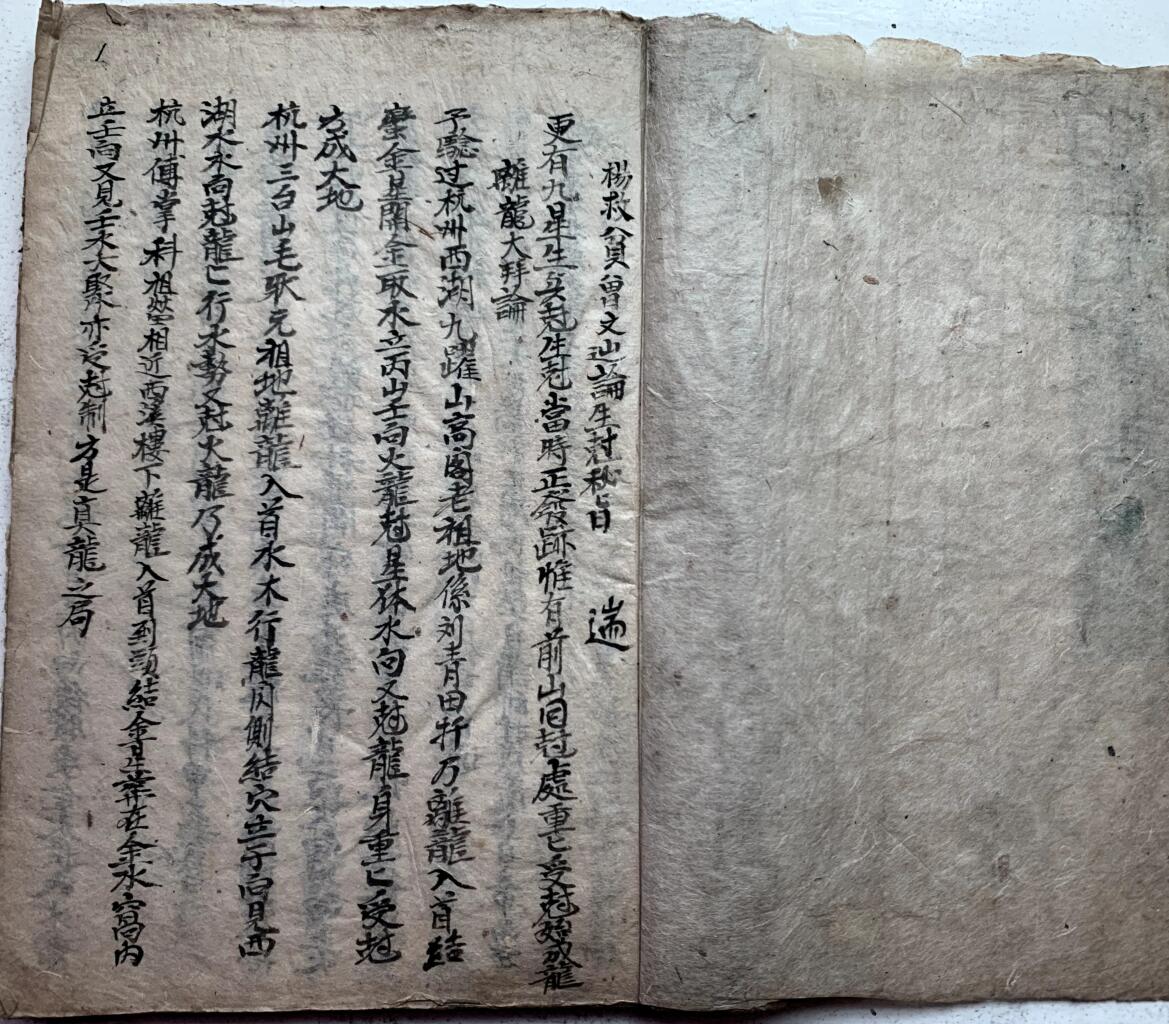 楊救貧曾文辿論生尅秘旨　遄
更有九星生與尅生尅當時正發跡惟有前山旧尅處重匕受尅始成龍
離龍大拜論
予驗过杭州西湖九躍山高閣老祖地係刘青田扦乃離龍入首結
窩金星開金取水立丙山壬向火龍尅星体水向又尅龍身重匕受尅
方成大地
杭州三台山毛狀元祖地離龍入首水木行龍閃側結穴立子向見西
湖水水向尅龍匕行水勢又尅火龍乃成大地
杭州傅掌科祖塋相近西溪樓下離龍入首到頭結金星葬在金水窩内
立壬向又見壬水大聚亦受尅制方是真龍之局